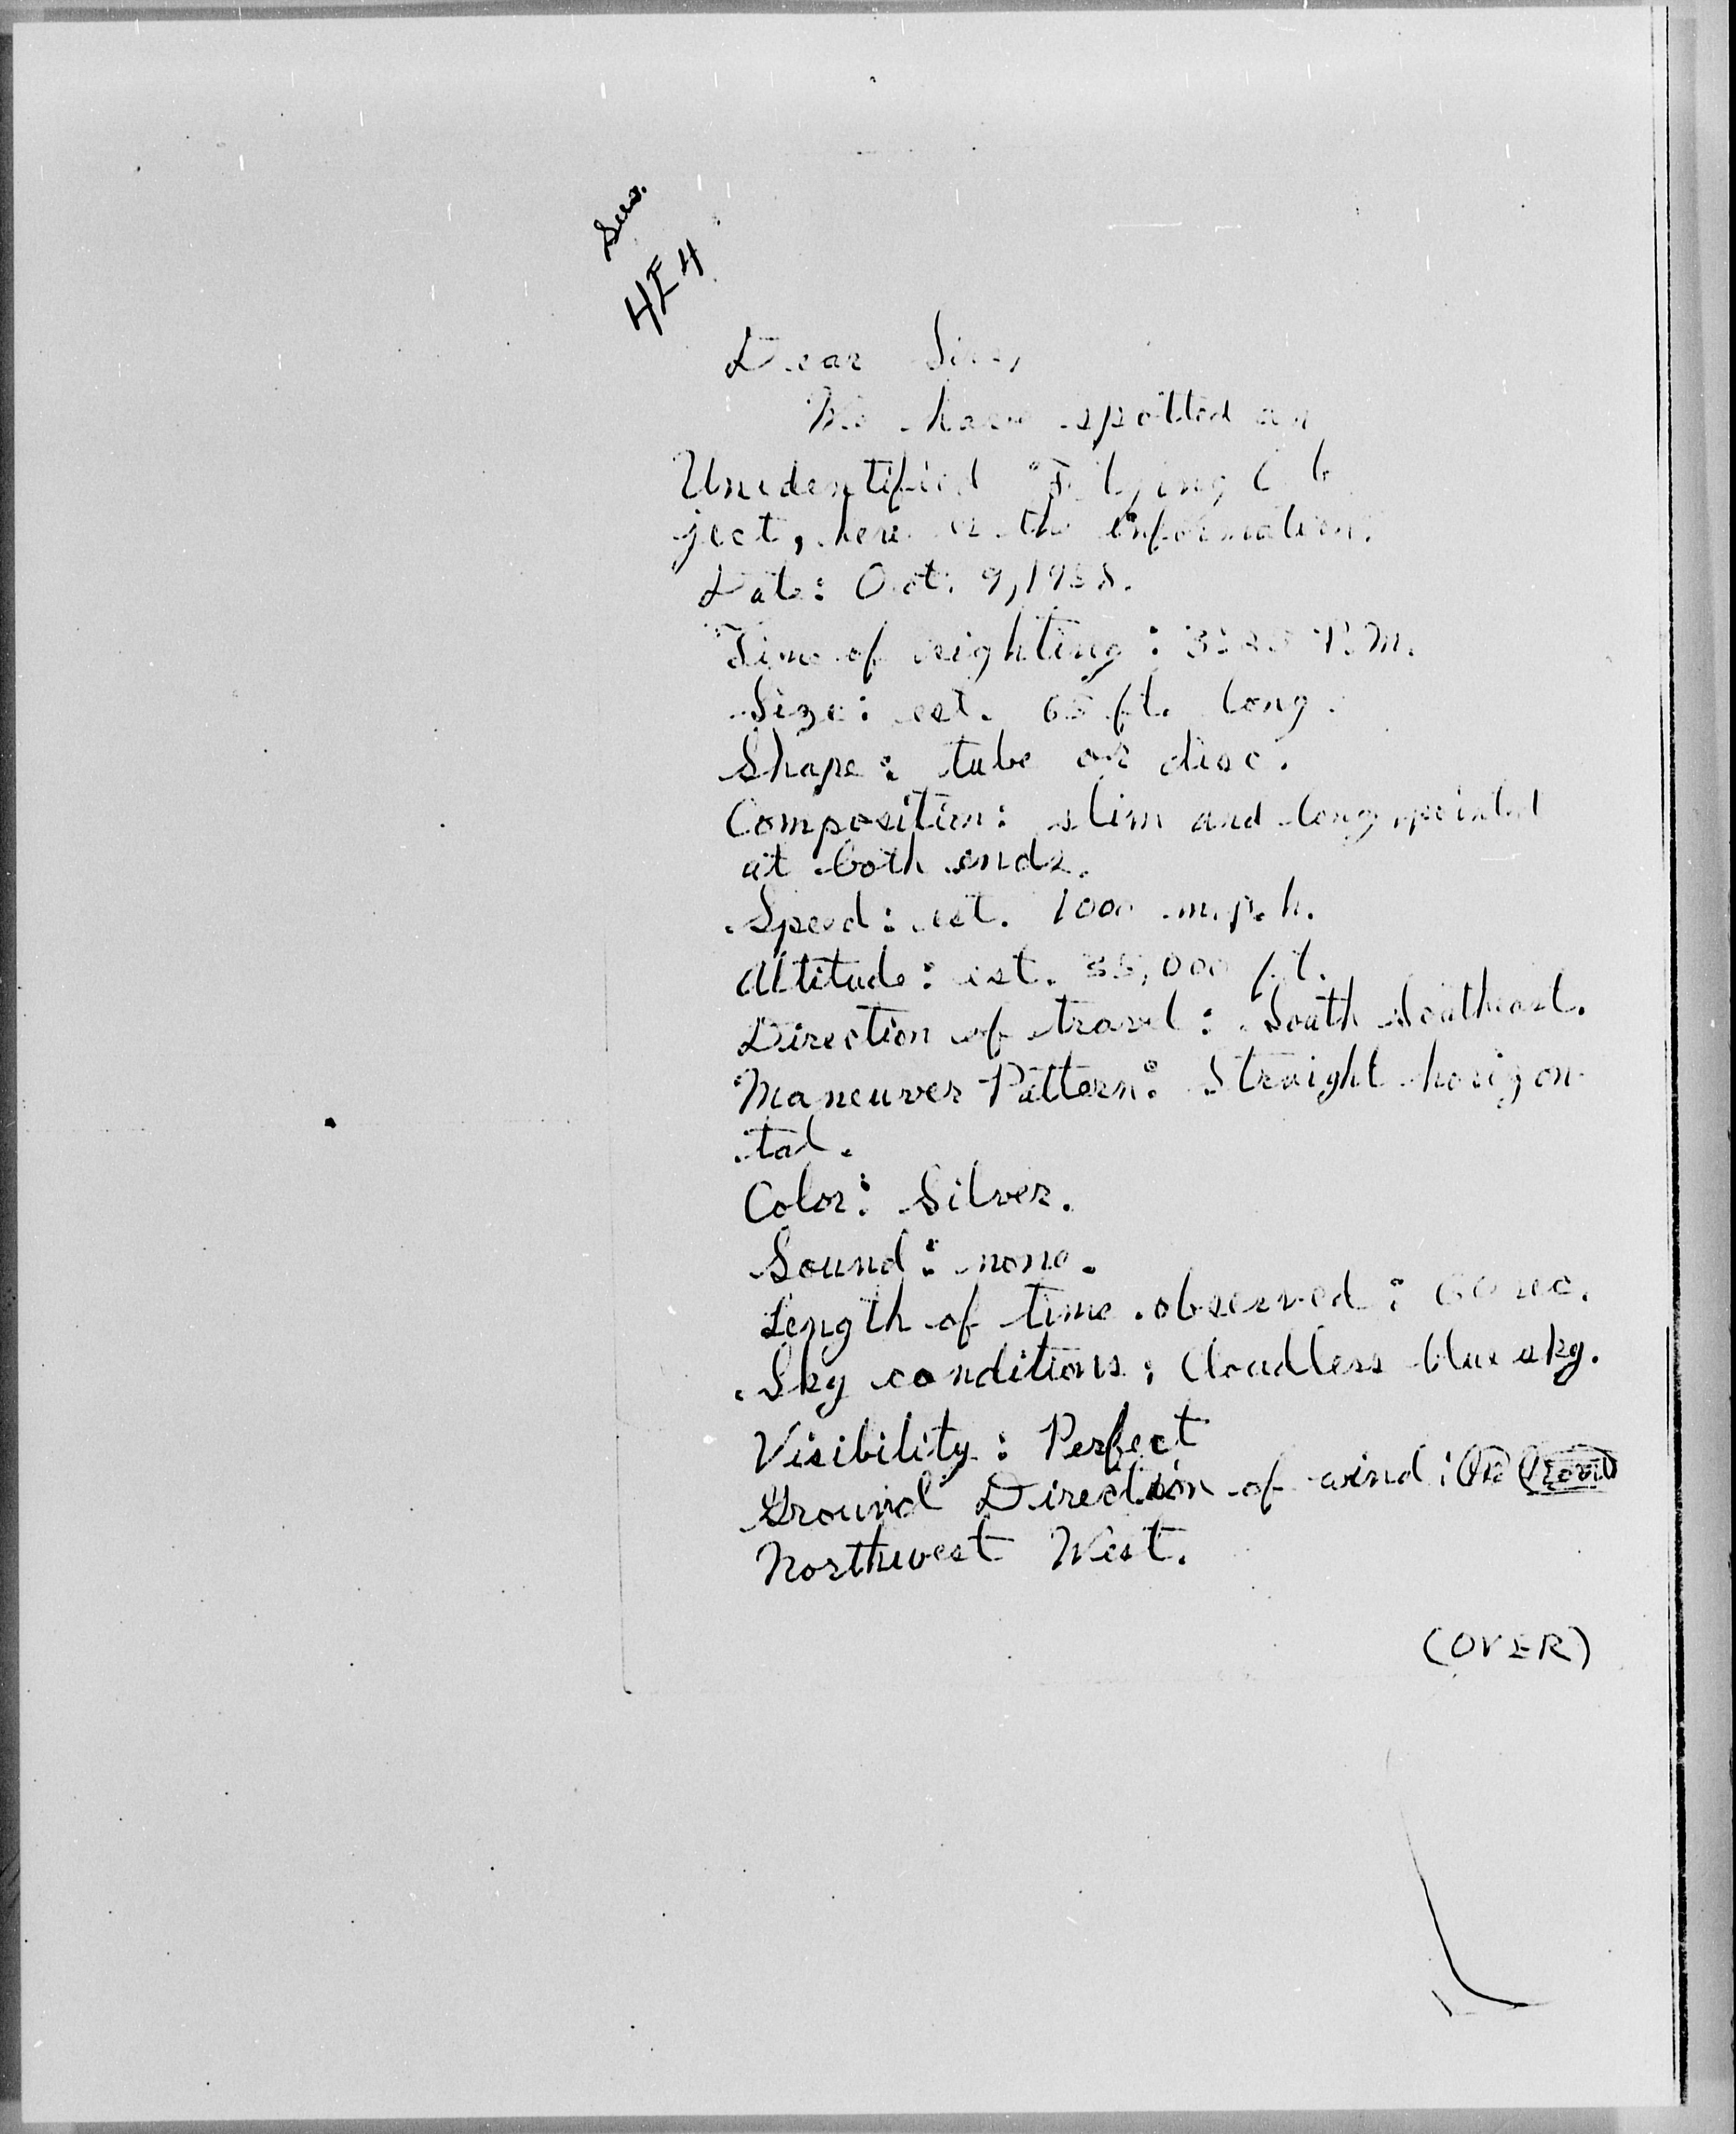 4E4
Dear Sirs,
We have spotted an
Unidentified Flying Ob
ject, here is the information.
Date: Oct. 9, 1958.
Time of seighting: 3:25 P.M.
Size: est. 65 ft. long.
Shape: tube or disc.
Composition: slim and long pointed
at both ends.
Speed: est. 1000 m.p.h.
Altitude: est. 35,000 ft.
Direction of travel: South Southeast.
Maneuver Pattern: Straight horizon
tal.
Color: Silver.
Sound: none.
Length of time observed: 60 sec.
Sky conditions: Cloudless blue sky.
Visibility: Perfect
Ground Direction of wind:
Northwest West.
(OVER)